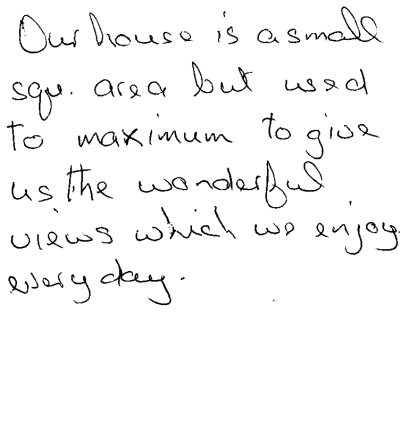 Our house is a small
squ. area but used
to maximum to give
us the wonderful
views which we enjoy
every day.